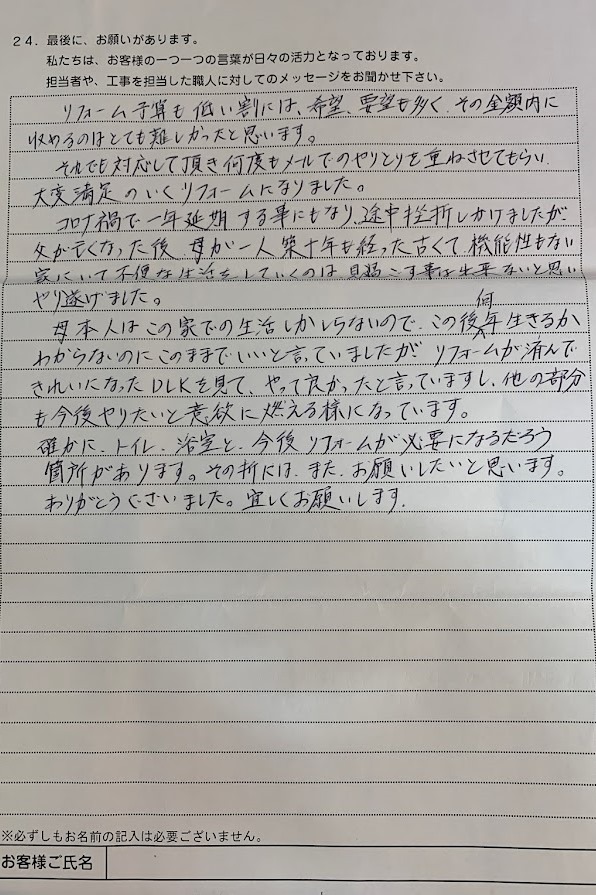 24. 最後に、お願いがあります。
私たちは、お客様の一つ一つの言葉が日々の活力となっております。
担当者や、工事を担当した職人に対してのメッセージをお聞かせ下さい。
リフォーム予算も低い割には、希望、要望も多く、その金額内に
収めるのはとても難しかったと思います。
それでも対応して頂き何度もメールでのやりとりを重ねさせてもらい、
大変満足のいくリフォームになりました。
コロナ禍で一年延期する事にもなり、途中挫折しかけましたが、
父が亡くなった後、母が一人築十年も経った古くて、機能性もない
家にいて不便な生活をしていくのは見過ごす事は出来ないと思い
やり遂げました。
母本人はこの家での生活しかしらないので、この後何年生きるか
わからないのにこのままでいいと言っていましたが、リフォームが済んで
きれいになったDLKを見て、やって良かったと言っていますし、他の部分
も今後やりたいと意欲に燃える様になっています。
確かに、トイレ、浴室と、今後リフォームが必要になるだろう
箇所があります。その折には、また、お願いしたいと思います。
ありがとうございました。宜しくお願いします。
※必ずしもお名前の記入は必要ございません。
お客様ご氏名